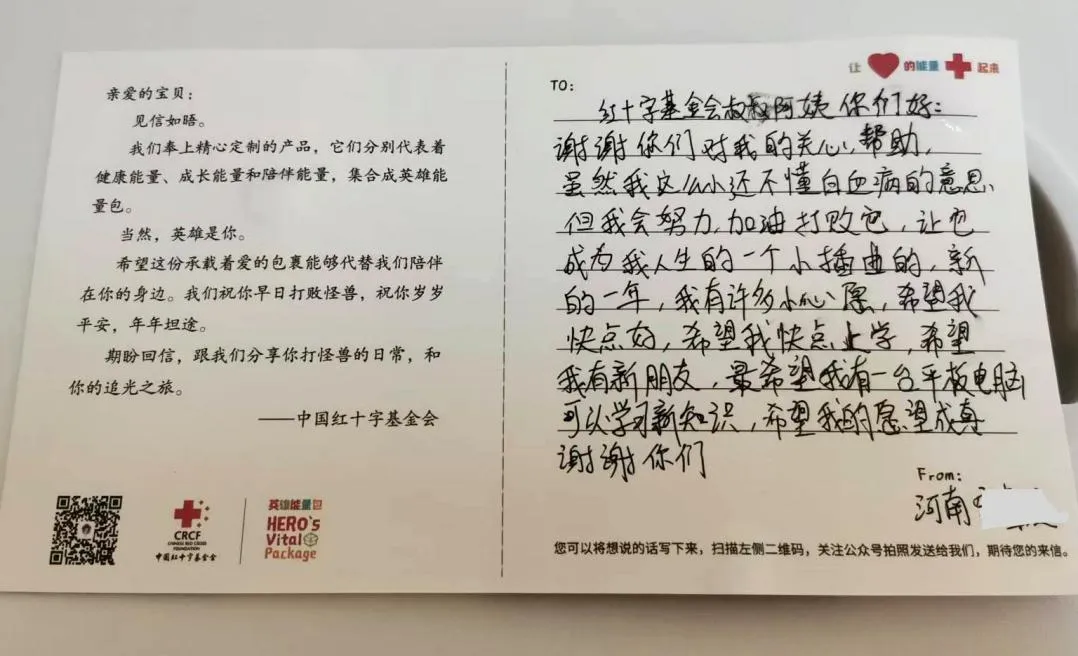 亲爱的宝贝：
见信如晤。
我们奉上精心定制的产品，它们分别代表着
健康能量、成长能量和陪伴能量，集合成英雄能
量包。
当然，英雄是你。
希望这份承载着爱的包裹能够代替我们陪伴
在你的身边。我们祝你早日打败怪兽，祝你岁岁
平安，年年坦途。
期盼回信，跟我们分享你打怪兽的日常，和
你的追光之旅。
——中国红十字基金会
CRCF
CHINESE RED CROSS
FOUNDATION
中国红十字基金会
英雄能量包
HERO's
Vital
Package
让的能量起来
TO:
红十字基金会叔叔阿姨你们好：
谢谢你们对我的关心、帮助，
虽然我这么小还不懂白血病的意思、
但我会努力,加油打败它，让它
成为我人生的一个小插曲的，新
的一年，我有许多小心愿，希望我
快点好，希望我快点上学，希望
我有新朋友，最希望我有一台平板电脑
可以学习新知识，希望我的愿望成真
谢谢你们
From:
河南
您可以将想说的话写下来，扫描左侧二维码，关注公众号拍照发送给我们，期待您的来信。